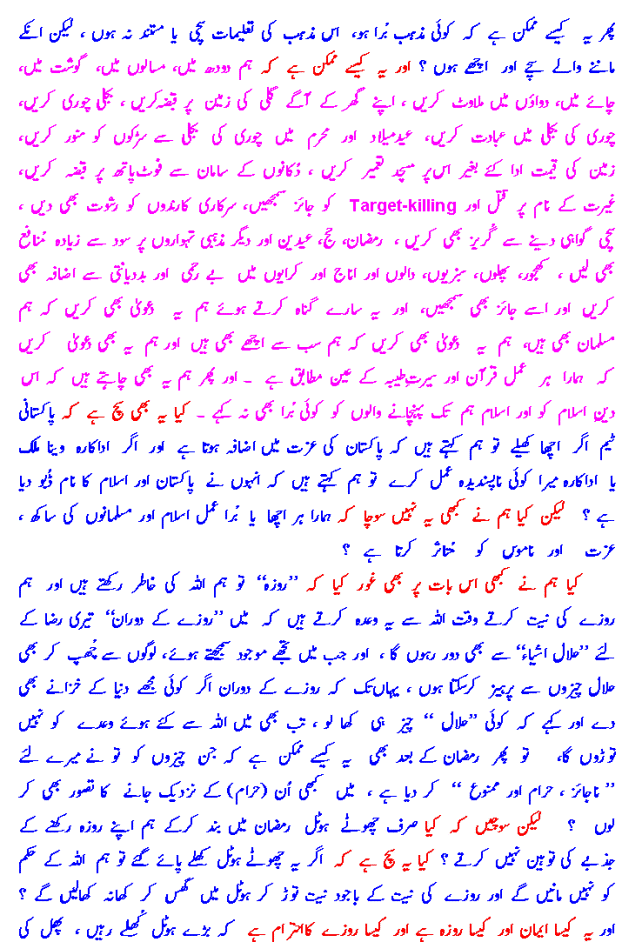 پھر یہ کیسے ممکن ہے کہ کوئی مذہب بُرا ہو، اس مذہب کی تعلیمات سچی یا مستند نہ ہوں ، لیکن انکے
ماننے والے سچے اور اچھے ہوں ؟ اور یہ کیسے ممکن ہے کہ ہم دودھ میں، مسالوں میں، گوشت میں،
چائے میں، دواؤں میں ملاوٹ کریں ، اپنے گھر کے آگے گلی کی زمین پر قبضہ کریں ، بجلی چوری کریں،
چوری کی بجلی میں عبادت کریں، عیدمیلاد اور محرم میں چوری کی بجلی سے سڑکوں کو منور کریں،
زمین کی قیمت ادا کئے بغیر اس پر مسجد تعمیر کریں ، دُکانوں کے سامان سے فوٹ پاتھ پر قبضہ کریں،
غیرت کے نام پر قتل اور Target-killing کو جائز سمجھیں، سرکاری کارندوں کو رشوت بھی دیں ،
سچی گواہی دینے سے گُریز بھی کریں ، رمضان، حج، عیدین اور دیگر مذہبی تہواروں پر سود سے زیادہ مُنافع
بھی لیں ، کھجور، پھلوں، سبزیوں، دالوں اور اناج اور کرایوں میں بے رحمی اور بددیانتی سے اضافہ بھی
کریں اور اسے جائز بھی سمجھیں، اور یہ سارے گناہ کرتے ہوئے ہم یہ دعویٰ بھی کریں کہ ہم
مسلمان بھی ہیں، ہم یہ دعویٰ بھی کریں کہ ہم سب سے اچھے بھی ہیں اور ہم یہ بھی دعویٰ کریں
کہ ہمارا ہر عمل قرآن اور سیرتِ طیبہ کے عین مطابق ہے ۔ اور پھر ہم یہ بھی چاہتے ہیں کہ اس
دینِ اسلام کو اور اسلام ہم تک پہنچانے والوں کو کوئی بُرا بھی نہ کہے ۔ کیا یہ بھی سچ ہے کہ پاکستانی
ٹیم اگر اچھا کھیلے تو ہم کہتے ہیں کہ پاکستان کی عزت میں اضافہ ہوتا ہے اور اگر اداکارہ وینا ملک
یا اداکارہ میرا کوئی ناپسندیدہ عمل کرے تو ہم کہتے ہیں کہ انہوں نے پاکستان اور اسلام کا نام ڈبو دیا
ہے ؟ لیکن کیا ہم نے کبھی یہ نہیں سوچا کہ ہمارا ہر اچھا یا بُرا عمل اسلام اور مسلمانوں کی ساکھ ،
عزت اور ناموس کو مُتاثر کرتا ہے ؟
کیا ہم نے کبھی اس بات پر بھی غور کیا کہ ’’روزہ‘‘ تو ہم اللہ کی خاطر رکھتے ہیں اور ہم
روزے کی نیت کرتے وقت اللہ سے یہ وعدہ کرتے ہیں کہ میں ’’روزے کے دوران‘‘ تیری رضا کے
لئے ’’حلال اشیاء‘‘ سے بھی دور رہوں گا ، اور جب میں تجھے موجود سمجھتے ہوئے، لوگوں سے چُھپ کر بھی
حلال چیزوں سے پرہیز کرسکتا ہوں ، یہاں تک کہ روزے کے دوران اگر کوئی مجھے دنیا کے خزانے بھی
دے اور کہے کہ کوئی ’’حلال ‘‘ چیز ہی کھا لو ، تب بھی میں اللہ سے کئے ہوئے وعدے کو نہیں
توڑوں گا، تو پھر رمضان کے بعد بھی یہ کیسے ممکن ہے کہ جن چیزوں کو تو نے میرے لئے
’’ ناجائز ، حرام اور ممنوع ‘‘ کر دیا ہے ، میں کبھی اُن (حرام) کے نزدیک جانے کا تصور بھی کر
لوں ؟ لیکن سوچیں کہ کیا صرف چھوٹے ہوٹل رمضان میں بند کرکے ہم اپنے روزہ رکھنے کے
جذبے کی توہین نہیں کرتے ؟ کیا یہ سچ ہے کہ اگر یہ چھوٹے ہوٹل کھلے پائے گئے تو ہم اللہ کے حکم
کو نہیں مانیں گے اور روزے کی نیت کے باجود نیت توڑ کر ہوٹل میں گھس کر کھانہ کھالیں گے ؟
اور یہ کیسا ایمان اور کیسا روزہ ہے اور کیسا روزے کا احترام ہے کہ بڑے ہوٹل کُھلے رہیں ، پھل کی